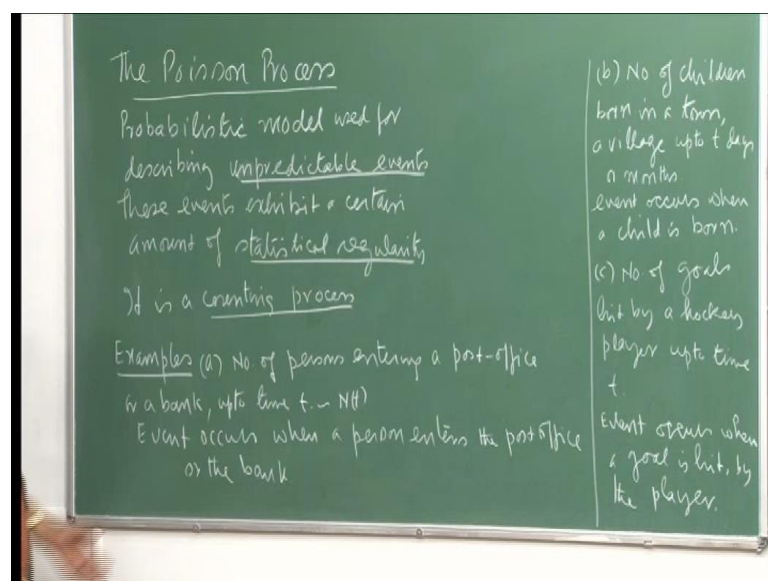 The Poisson Process
Probabilistic model used for
describing unpredictable events
These events exhibit a certain
amount of statistical regularity
It is a counting process
Examples (a) No. of persons entering a post-office
or a bank, upto time t. ~ N(t)
Event occurs when a person enters the post office
or the bank
(b) No of children
born in a town,
a village upto t days
or months.
event occurs when
a child is born.
(c) No. of goals
hit by a hockey
player upto time
t.
Event occurs when
a goal is hit, by
the player.